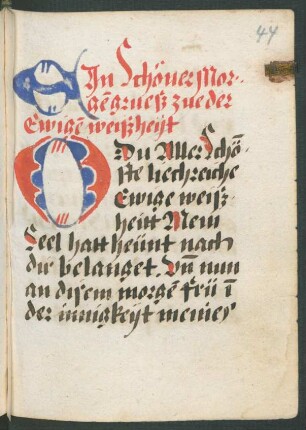 44
Ein Schöner Mor-
gē grueß zue der
Ewigē weißheÿt
O Du Aller Schö-
ste liechreiche
Ewige weiß-
heitt Mein
Seel hatt heünt nach
dir belanget, Vñ nun
an disem morgē frü ī
der innigkeÿt meines